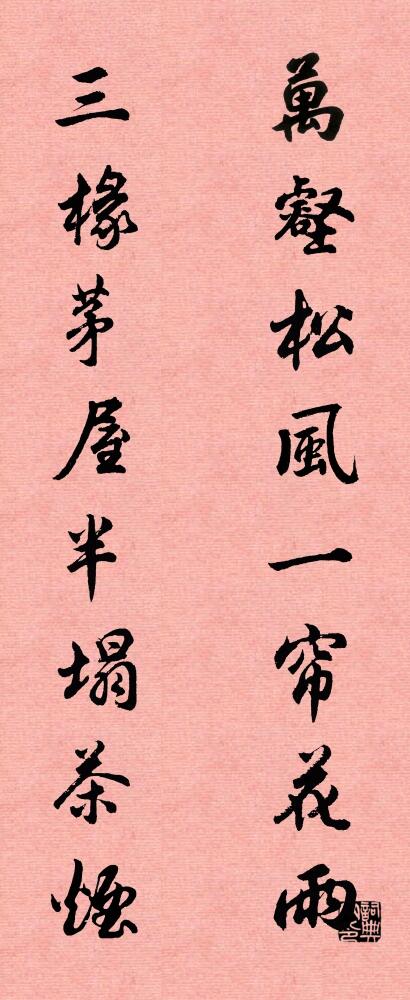 萬壑松風一帘花雨
三椽茅屋半塌茶煙